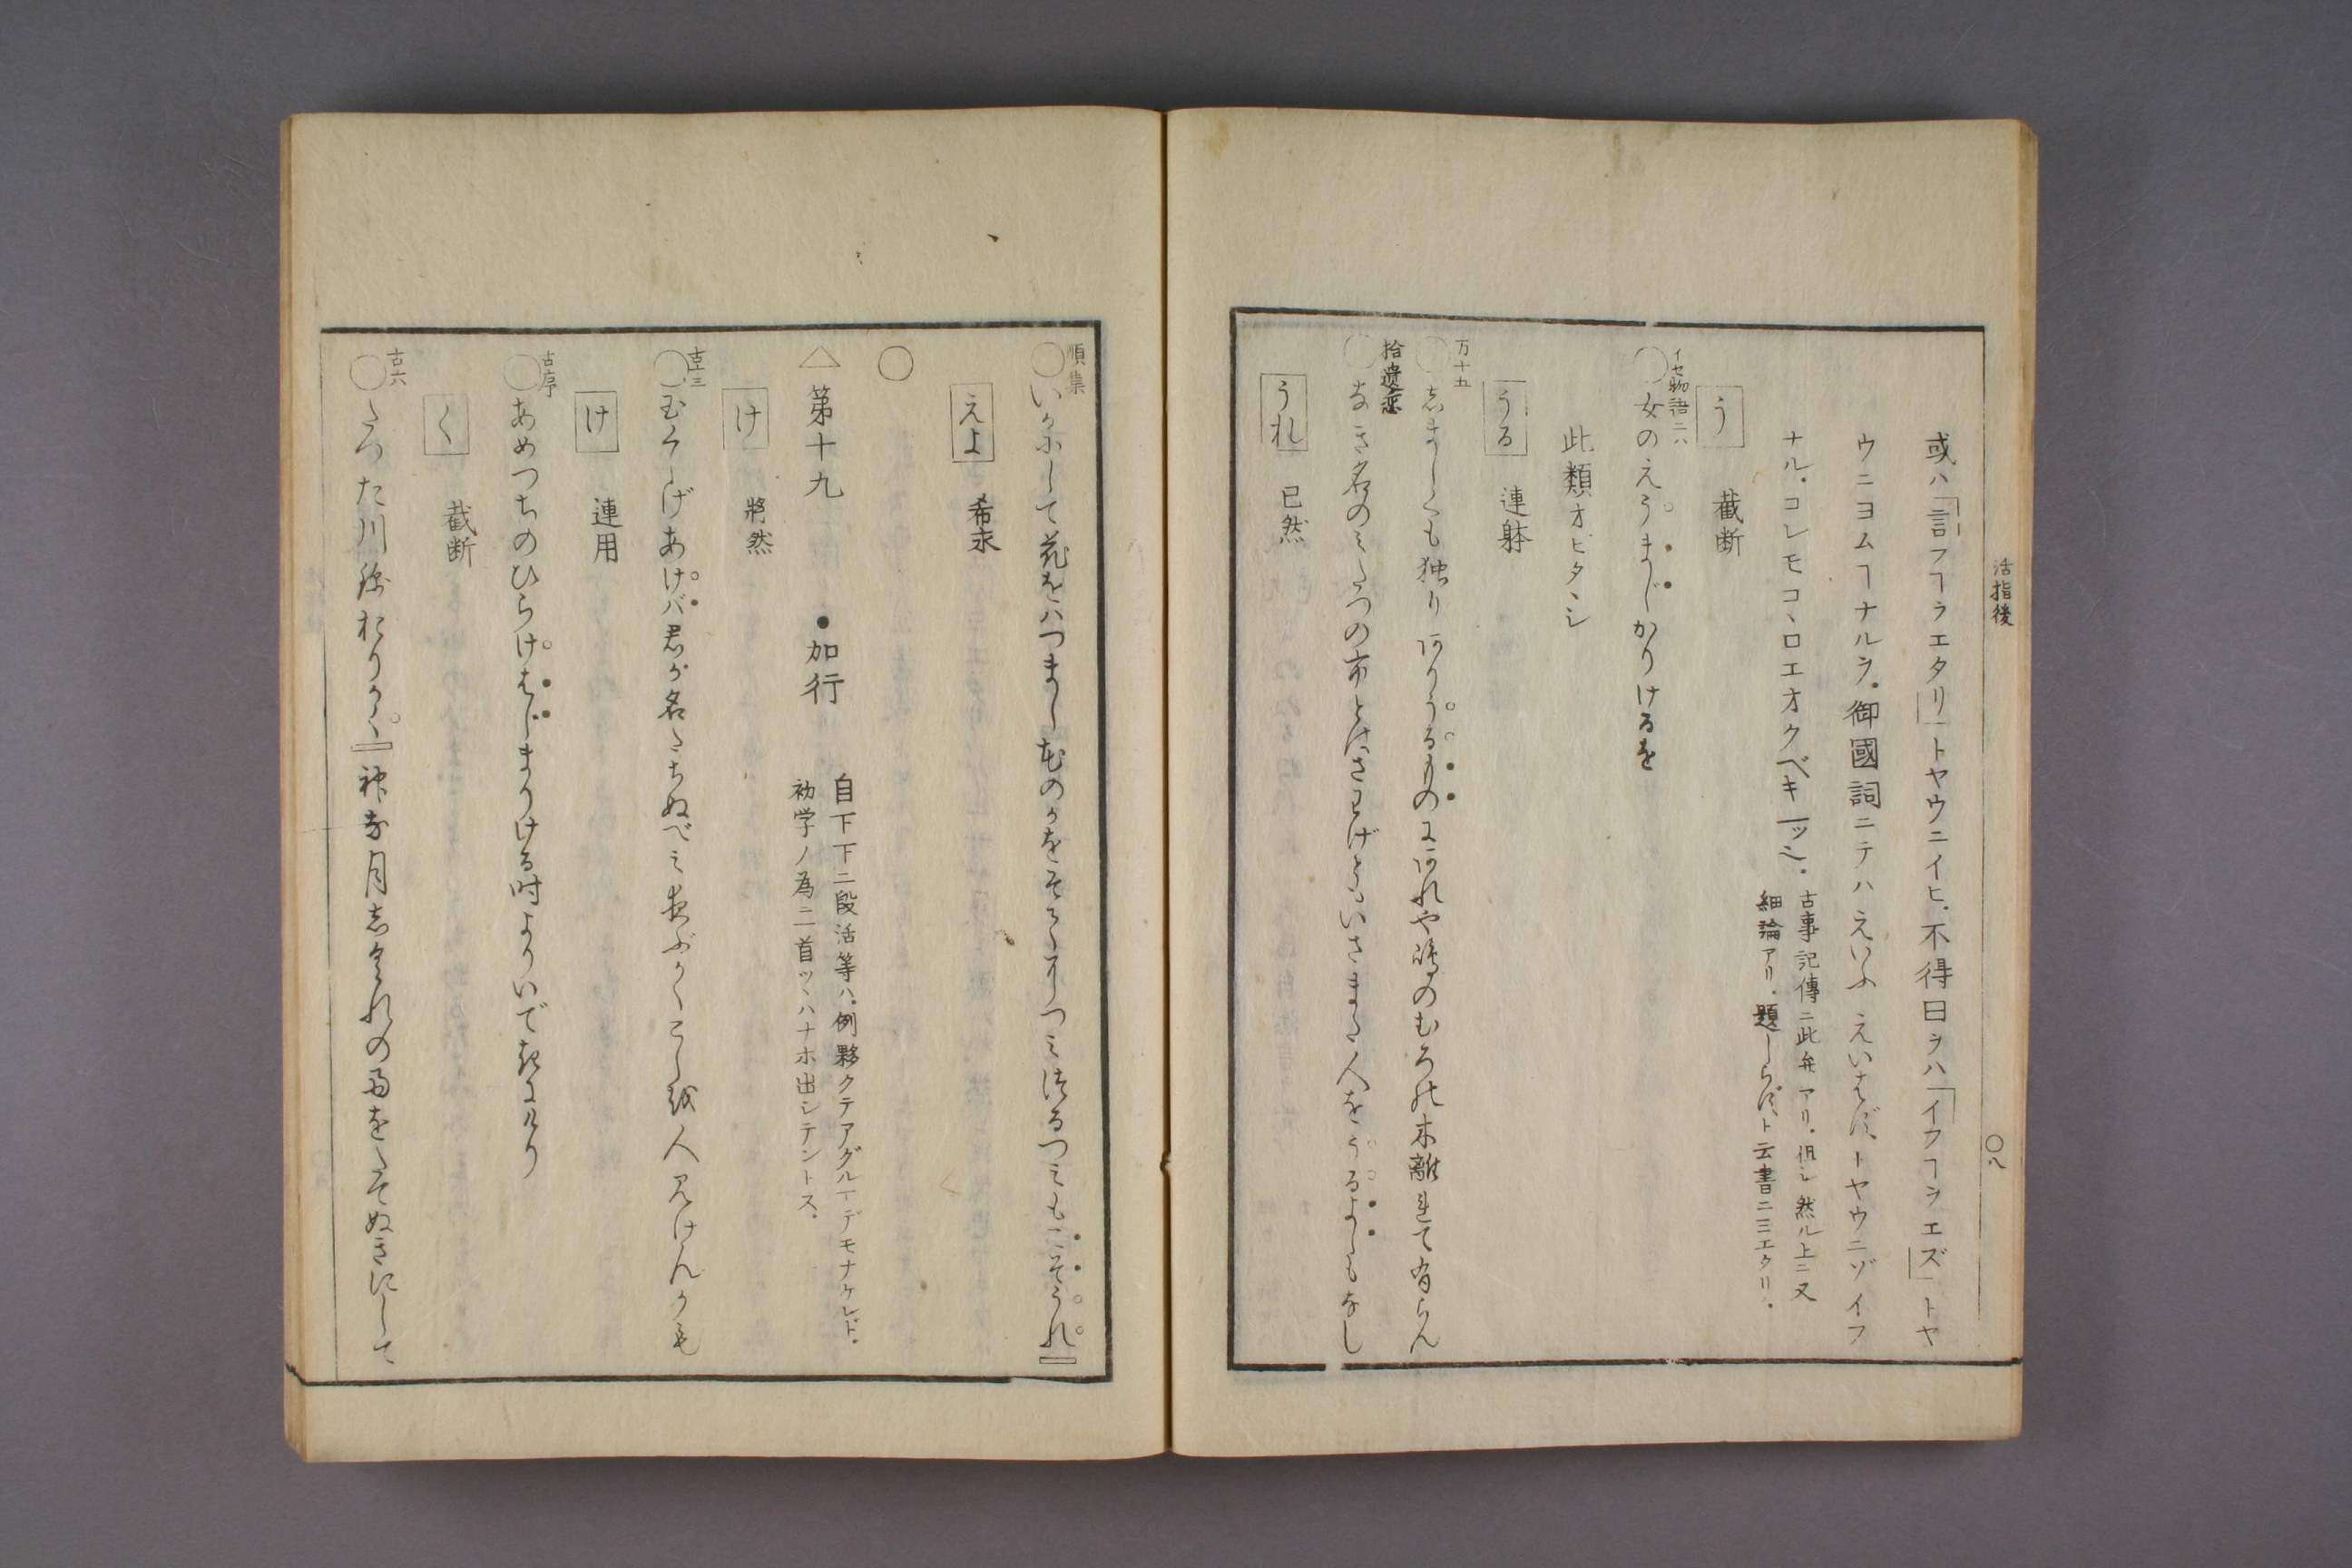 活指後
〇八
或ハ「言フヿヲエタリ」トヤウニイヒ。不得曰ヲハ「イフヿヲエズ」トヤ
ウニヨムヿナルヲ。御國詞ニテハえいふ えいはず、トヤウニゾイフ
ナル。コレモコヽロエオクベキヿゾシ。
古事記傳ニ此弁アリ。但シ然ル上ニ又
細論アリ。題しらず、ト云書ニミエタリ。
う 截断
イセ物語二八
〇女のえうまじかりけるを
此類オヒタヽシ
うる 連体
万十五
〇しましくも独りありうるものにあれや嶋のむろの木離れて有らん
拾遺恋
〇なき名のみたつの市とはさわげどもいさまた人をうるよしもなし
うれ 已然
順集
〇いかにして花をハつまむむのかをそへりつみ はるつみもこそうれ
えよ 希求
〇
△ 第十九 ●加行
自下下二段活等ハ。例夥クテアグルヿデモナケレド。
初学ノ為ニ二首ツヽハナホ出シテントス。
け 將然
古十三
〇玉くしげあけバ君が名たちぬべみ夜ぶかくこしを人見けんかも
け 連用
古序
〇あめつちのひらけはじまりける時よりいできにけり
く 截断
古六
〇たつた川錦おりかく神な月しぐれの雨をたてぬきにして